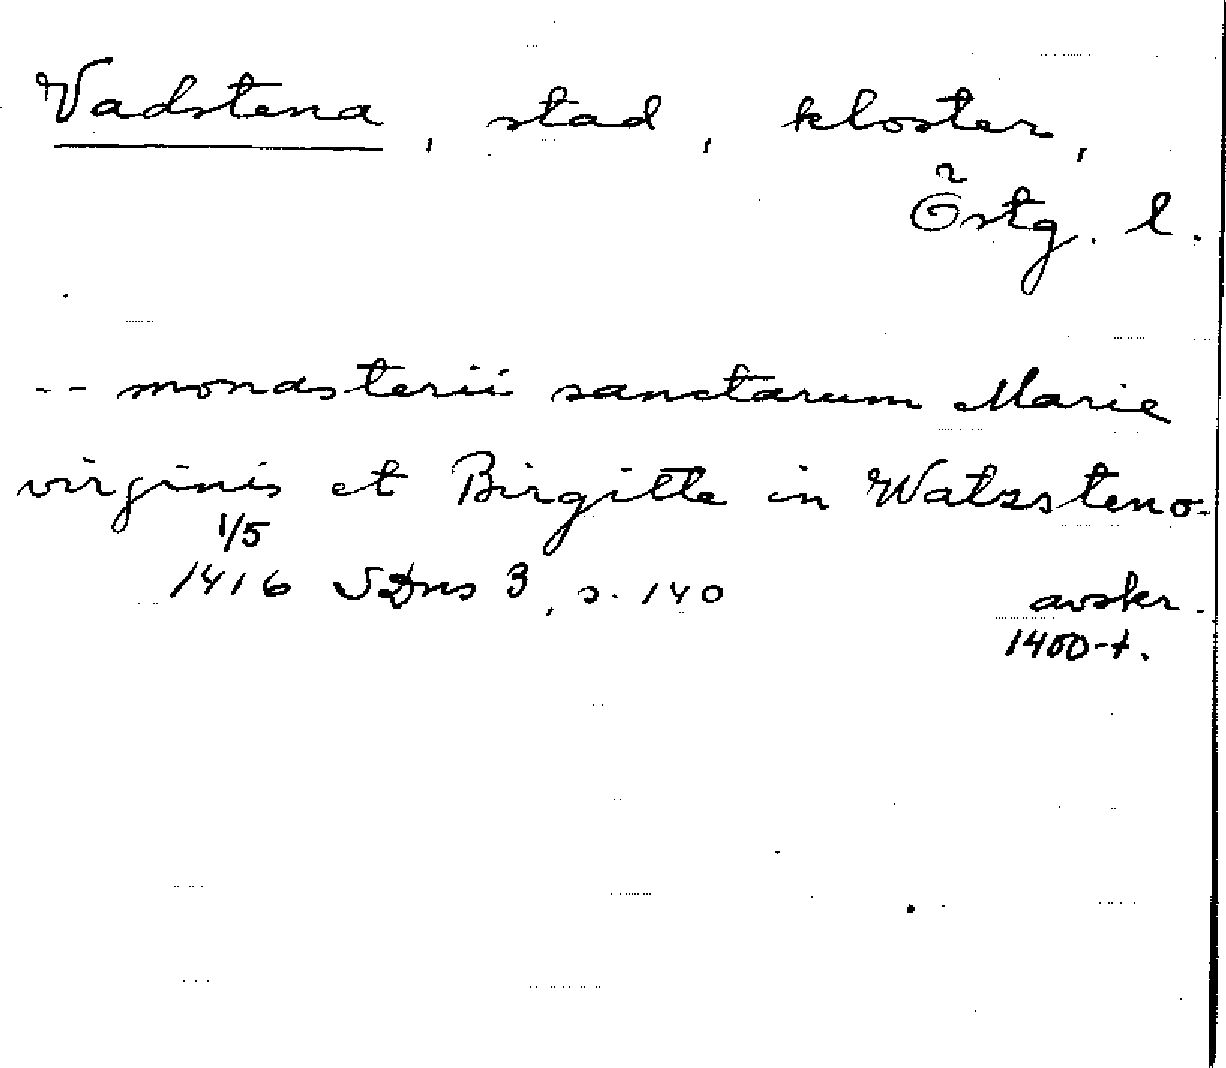 Vadstena, stad, kloster,
Östg. l.
-- monasterii sanctarum Marie
virginis et Birgitte in Watzsteno-
1/5
1416 SDns 3, s. 140 avskr.
1400-t.